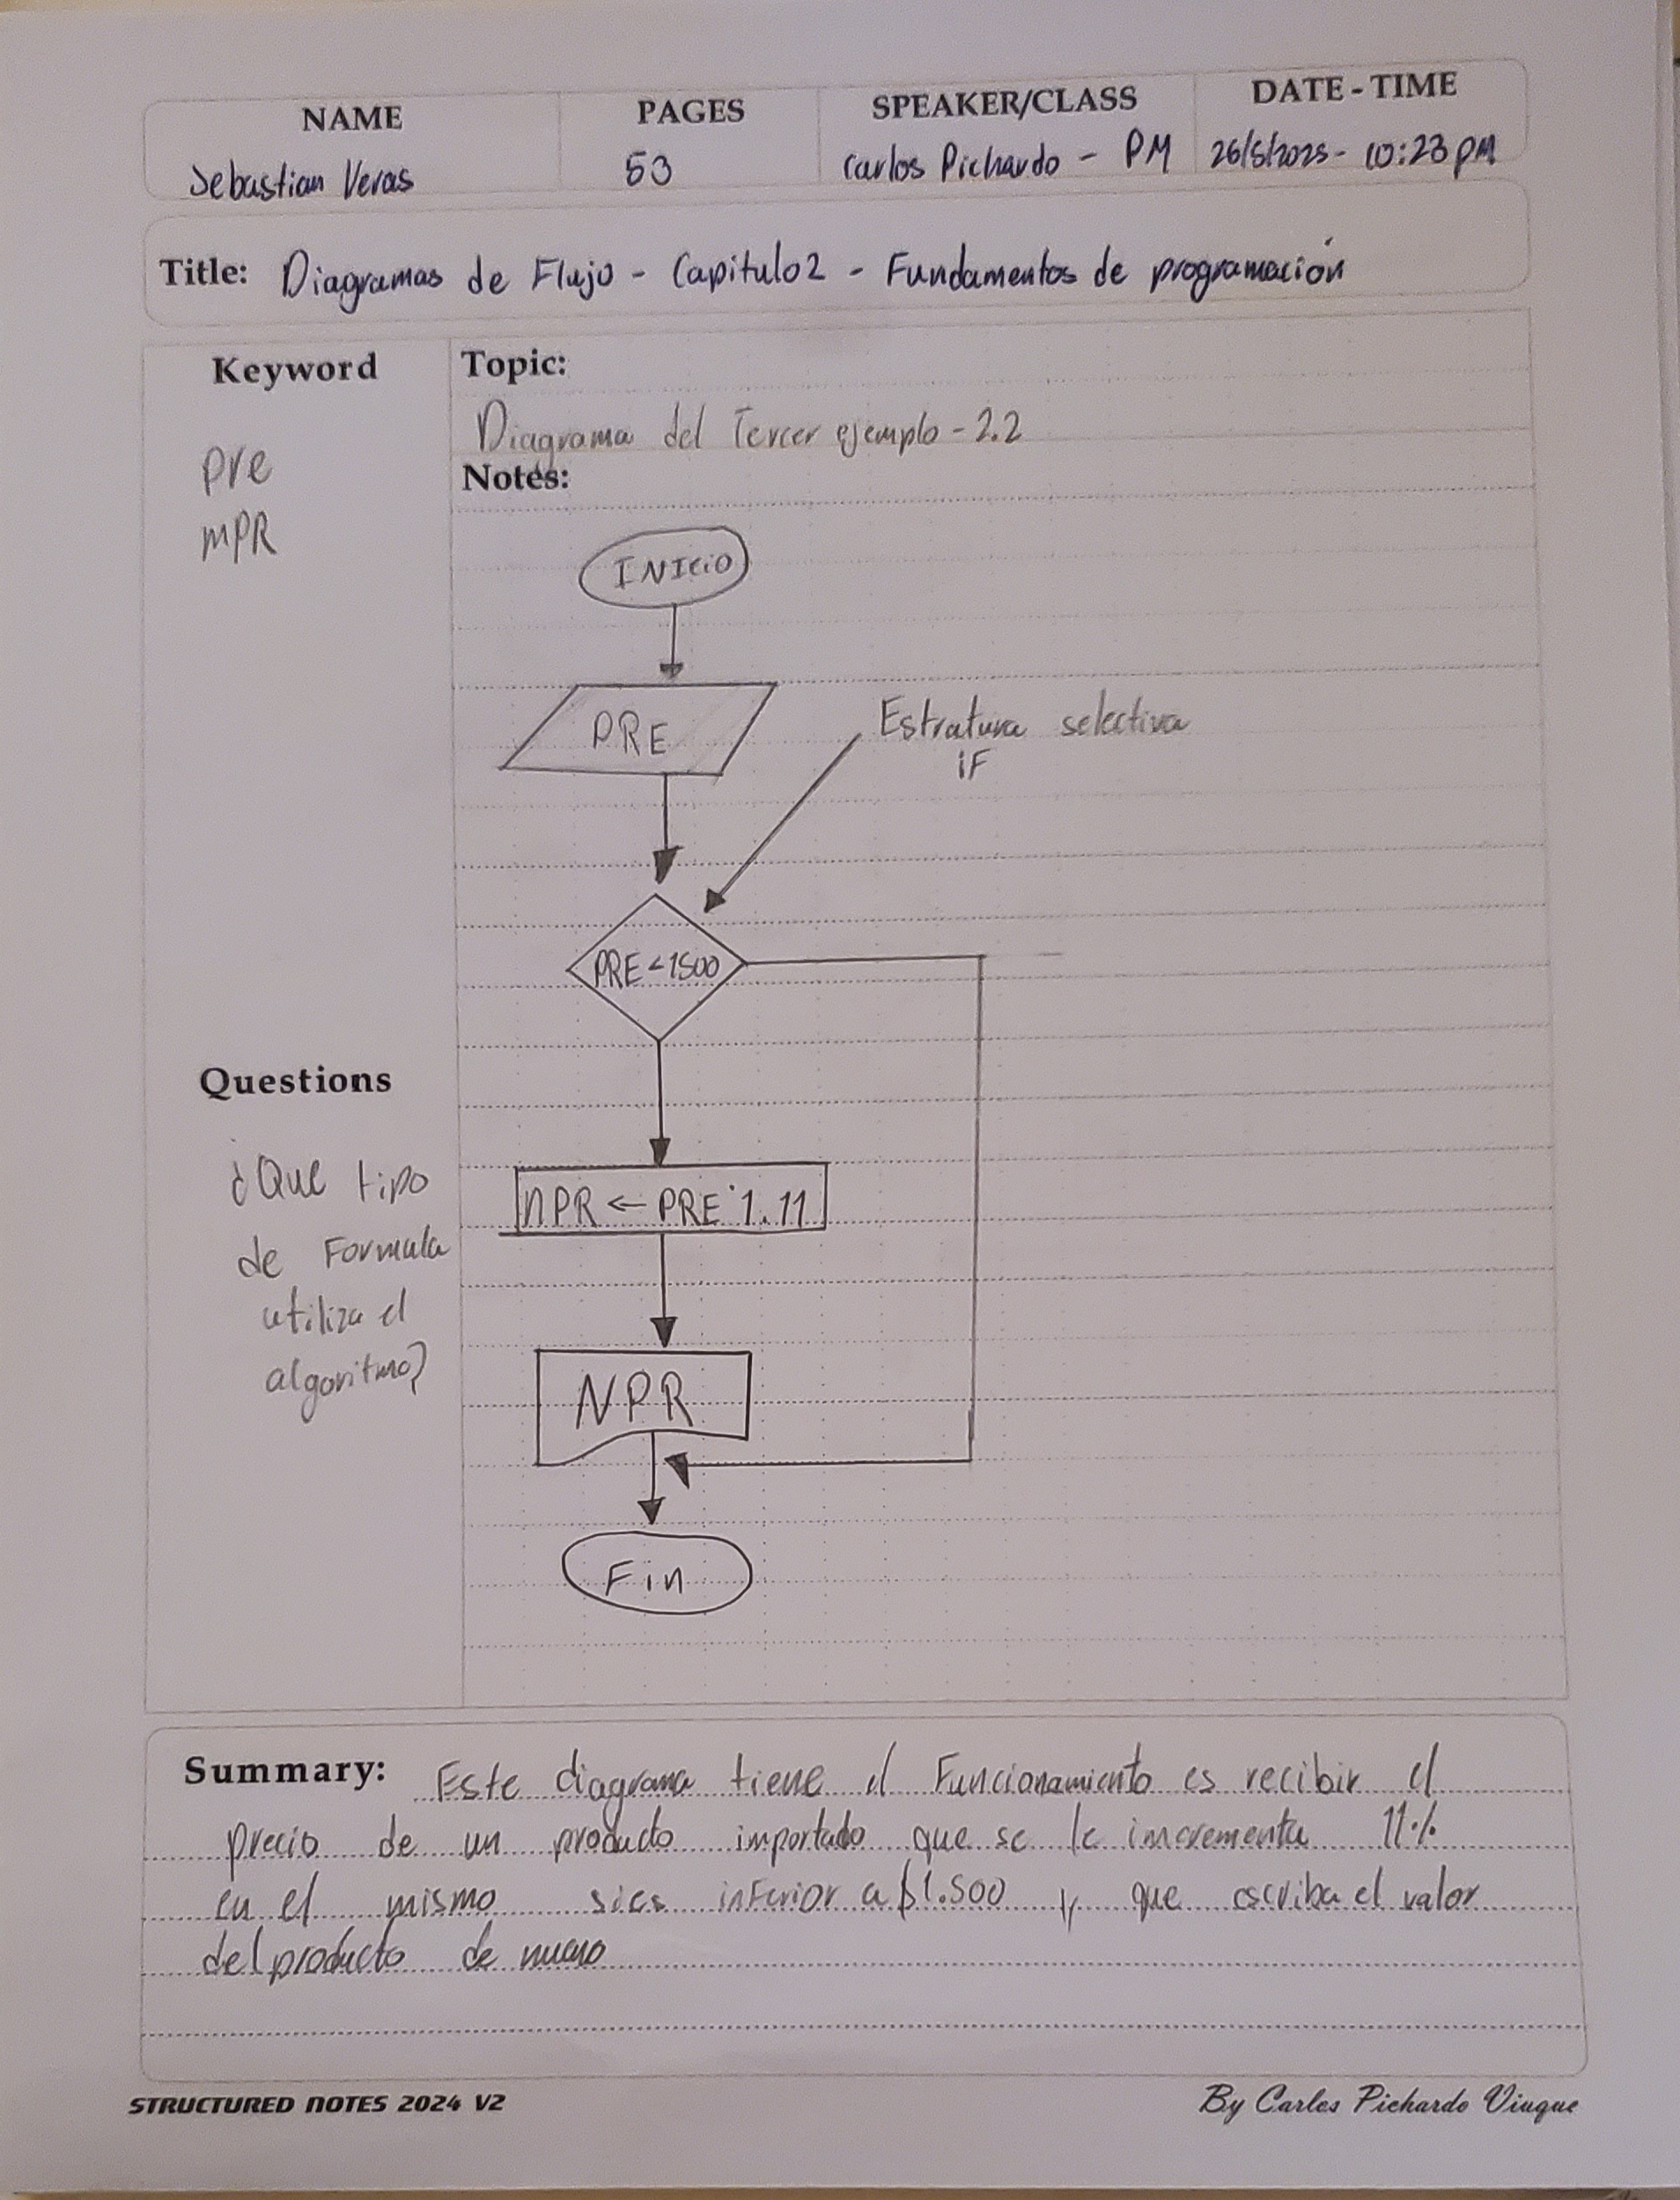 NAME
PAGES
SPEAKER/CLASS
DATE - TIME
Sebastian Veras
53
Carlos Pichardo - PM
26/5/2025 - 10:23 PM
Title: Diagramas de Flujo - Capitulo 2 - Fundamentos de programación
Keyword
pre
mPR
Topic:
Diagrama del Tercer ejemplo - 2.2
Notes:
INICIO
PRE
Estratura selectiva
iF
PRE < 1500
NPR ← PRE * 1.11
NPR
Fin
Questions
¿Que tipo
de Formula
utiliza el
algoritmo?
Summary: Este diagrama tiene el Funcionamiento es recibir el
precio de un producto importado que se le incrementa 11%
en el mismo si es inferior a $1.500 y que escriba el valor
del producto de nuevo
STRUCTURED NOTES 2024 V2
By Carlos Pichardo Viuque